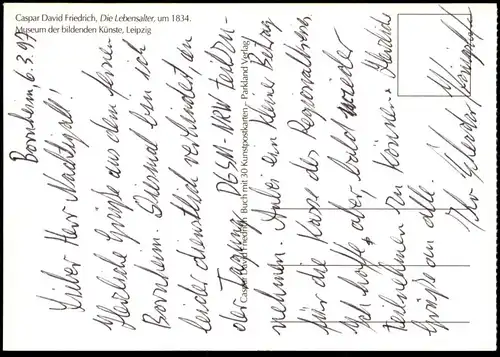 Caspar David Friedrich, Die Lebensalter, um 1834.
Museum der bildenden Künste, Leipzig
Caspar David Friedrich Buch mit 30 Kunstpostkarten – Parkland Verlag
Bornheim, 6.3.97
Lieber Herr Nachtigall!
Herzliche Grüße aus dem fernen
Bornheim. Diesmal bin ich
leider dienstlich verhindert, an
der Tagung DGSM-NRW teilzu-
nehmen. Anbei ein kleiner Betrag
für die Kasse des Regionalkreises.
Ich hoffe, aber bald wieder
teilnehmen zu können. Herzliche
Grüße an alle.
Ihr